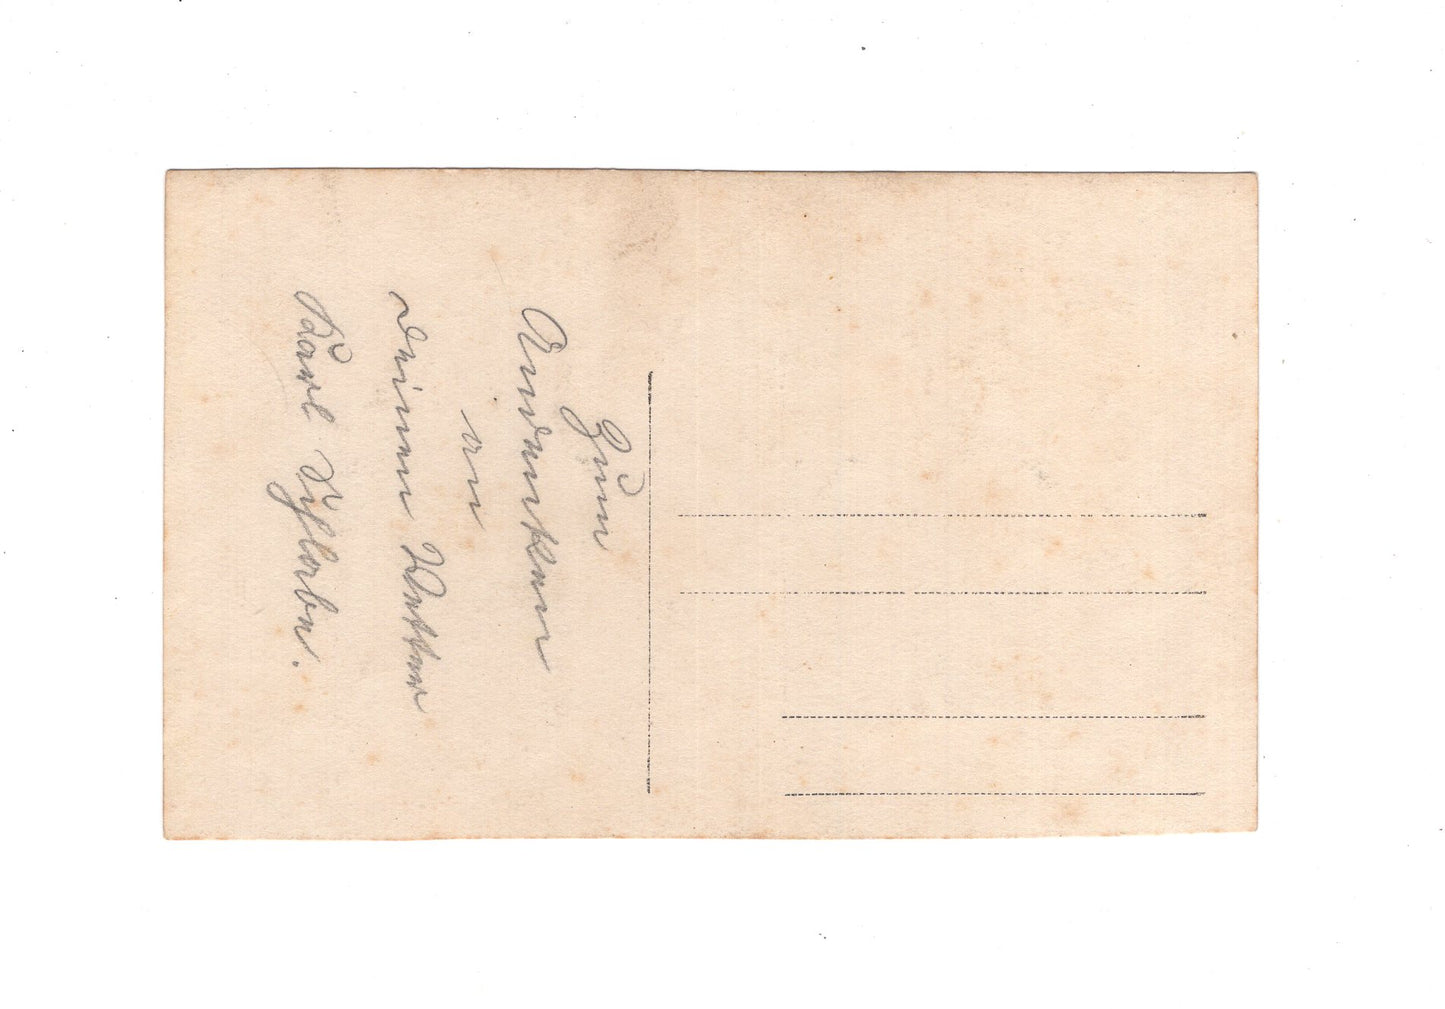 Zum
Andenken
an
deinen Vetter
Karl